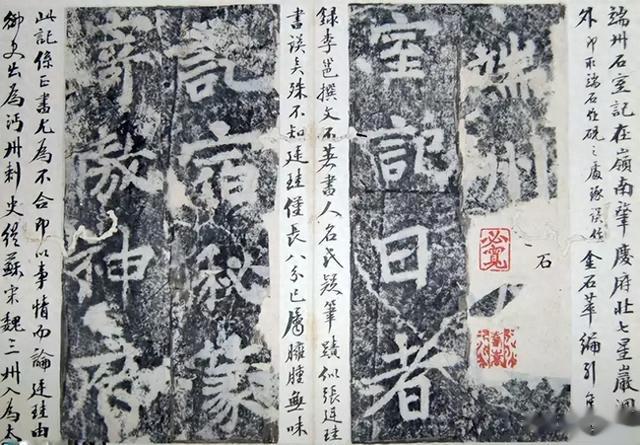 端州石室記在嶺南肇慶府北七星巖洞
外即取端石作硯之處遂誤作金石萃編引
端州
石
必寬
室記曰者
錄李邕撰文不著書人名氏疑筆蹟似張廷珪
書誤矣殊不知廷珪僅長八分已屬臃腫無味
記宿秘篆
神府
此記係正書尤為不合即以事情而論廷珪由
御史出為沔州刺史從蘇宋魏三州入為太